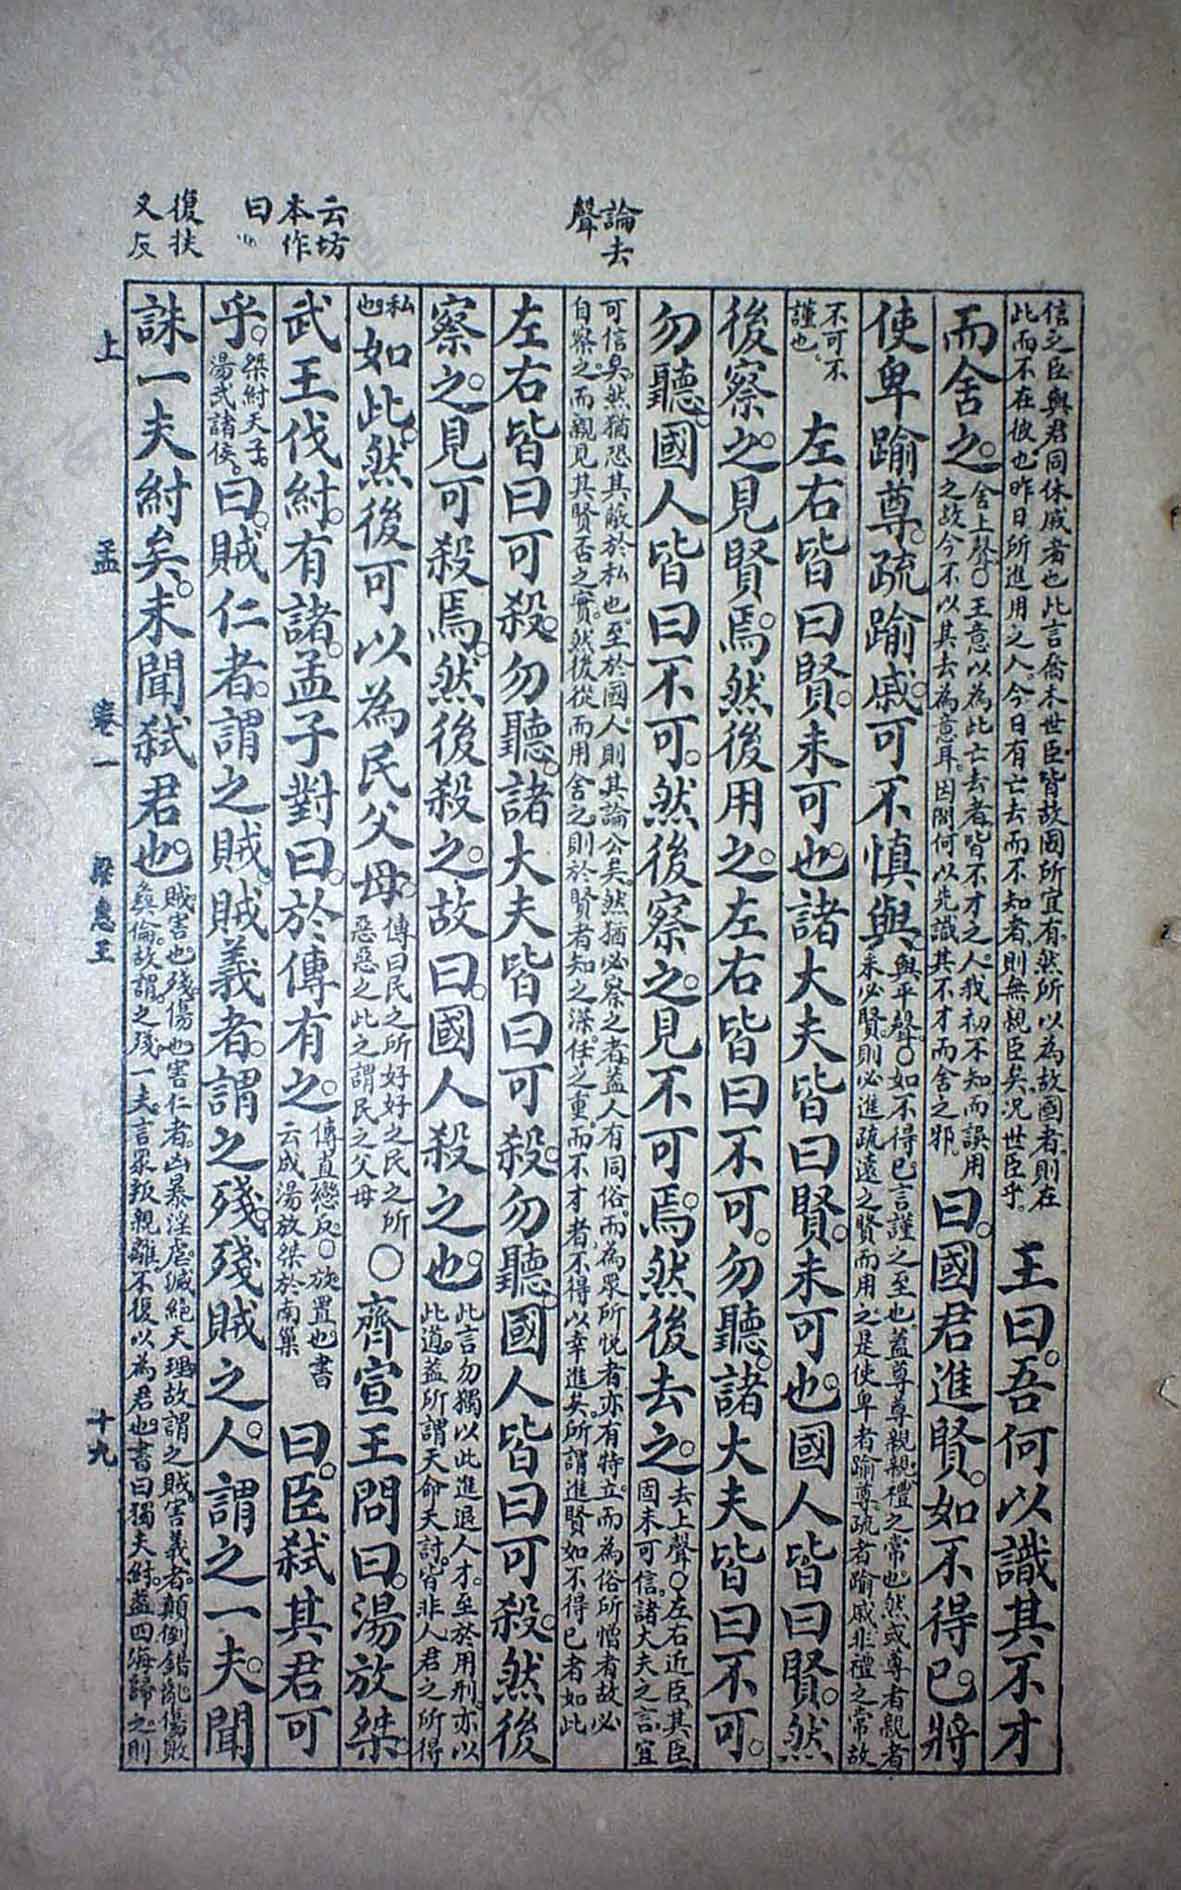 論去
聲
云坊
本作
曰
復扶
又反
信之臣與君同休戚者也此言喬木世臣皆故國所宜有然所以為故國者則在
此而不在彼也昨日所進用之人今日有亡去而不知者則無親臣矣況世臣乎。
王曰。吾何以識其不才
而舍之。
舍上聲○王意以為此亡去者皆不才之人我初不知而誤用
之故今不以其去為意耳。因問何以先識其不才而舍之邪。
曰。國君進賢。如不得已。將
使卑踰尊。疏踰戚。可不慎與。
與平聲。○如不得已言謹之至也蓋尊尊親親禮之常也然或尊者親者
未必賢則必進疏遠之賢而用之是使卑者踰尊疏者踰戚非禮之常故
不可不
謹也。
左右皆曰賢。未可也。諸大夫皆曰賢。未可也。國人皆曰賢。然
後察之。見賢焉。然後用之。左右皆曰不可。勿聽。諸大夫皆曰不可。
勿聽。國人皆曰不可。然後察之。見不可焉。然後去之。
去上聲○左右近臣其臣
固未可信。諸大夫之言宜
可信矣。然猶恐其蔽於私也。至於國人則其論公矣。然猶必察之者蓋人有同俗而為眾所悅者亦有特立而為俗所憎者故必
自察之而親見其賢否之實。然後從而用舍之則於賢者知之深。任之重。而不才者不得以幸進矣。所謂進賢如不得已者如此
左右皆曰可殺。勿聽。諸大夫皆曰可殺。勿聽。國人皆曰可殺。然後
察之。見可殺焉。然後殺之。故曰。國人殺之也。
此言勿獨以此進退人才。至於用刑亦以
此道。蓋所謂天命天討。皆非人君之所得
私
也
如此。然後可以為民父母。
傳曰民之所好好之民之所
惡惡之此之謂民之父母
○齊宣王問曰。湯放桀。
武王伐紂。有諸。孟子對曰。於傳有之。
傳直戀反。○放置也。書
云成湯放桀於南巢
曰。臣弒其君可
乎。
桀紂天子。
湯武諸侯。
曰。賊仁者。謂之賊。賊義者。謂之殘。殘賊之人。謂之一夫。聞
誅一夫紂矣。未聞弒君也。
賊害也殘傷也害仁者。凶暴淫虐。滅絕天理故謂之賊。害義者。顛倒錯亂傷敗
彝倫。故謂之殘一夫。言眾叛親離。不復以為君也。書曰獨夫紂。蓋四海歸之。則
上 孟 卷一 梁惠王 十九